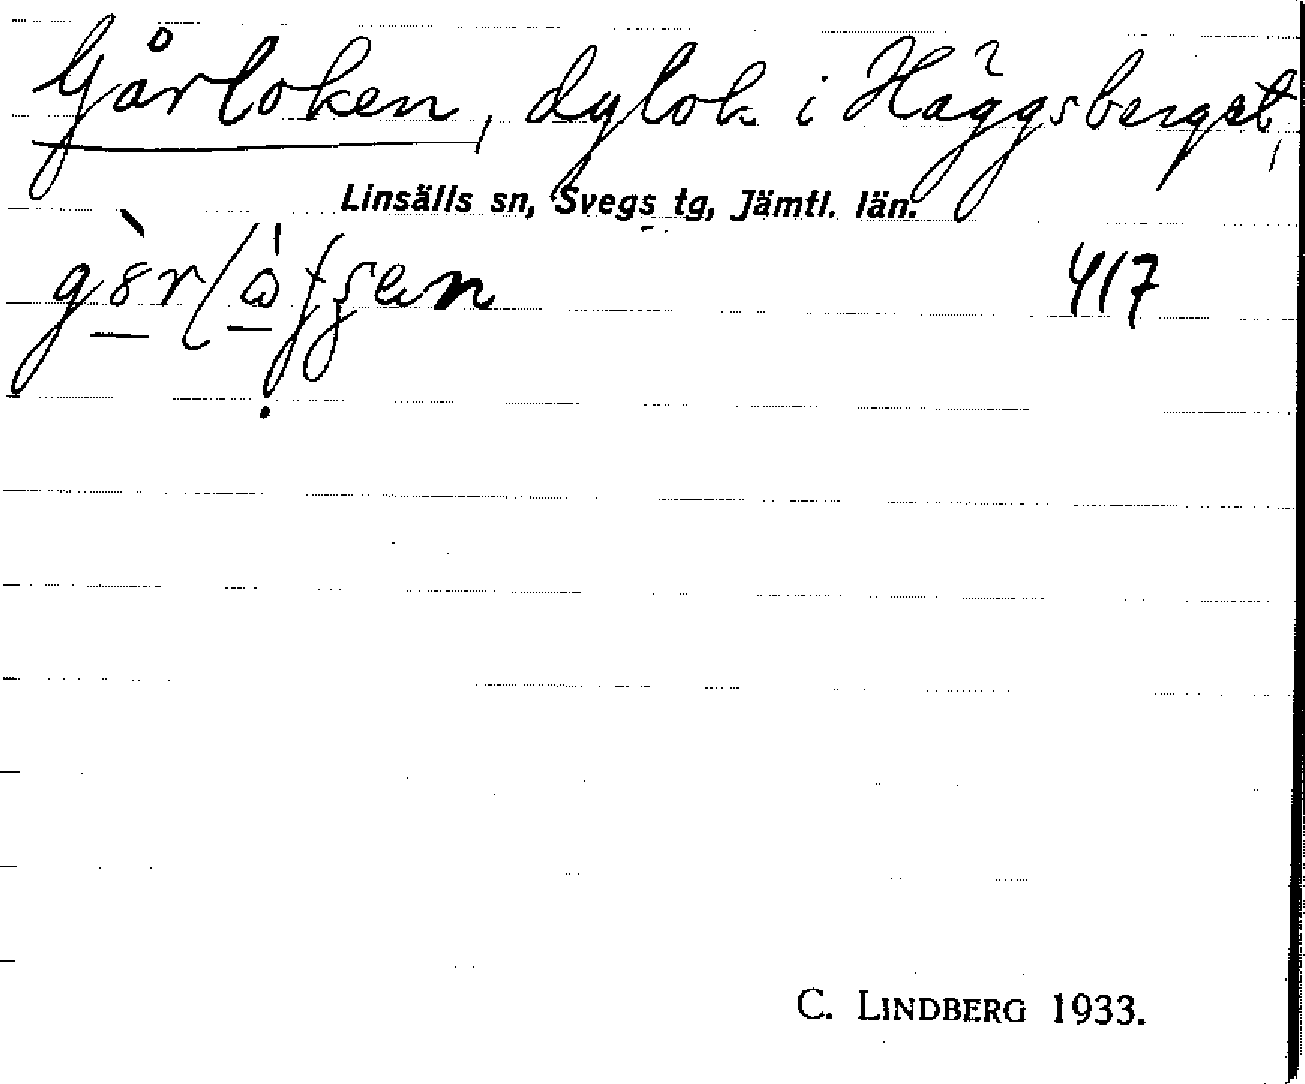 Gårloken, dylok i Häggsberget,
Linsälls sn, Svegs tg, Jämtl. län.
417
C. LINDBERG 1933.